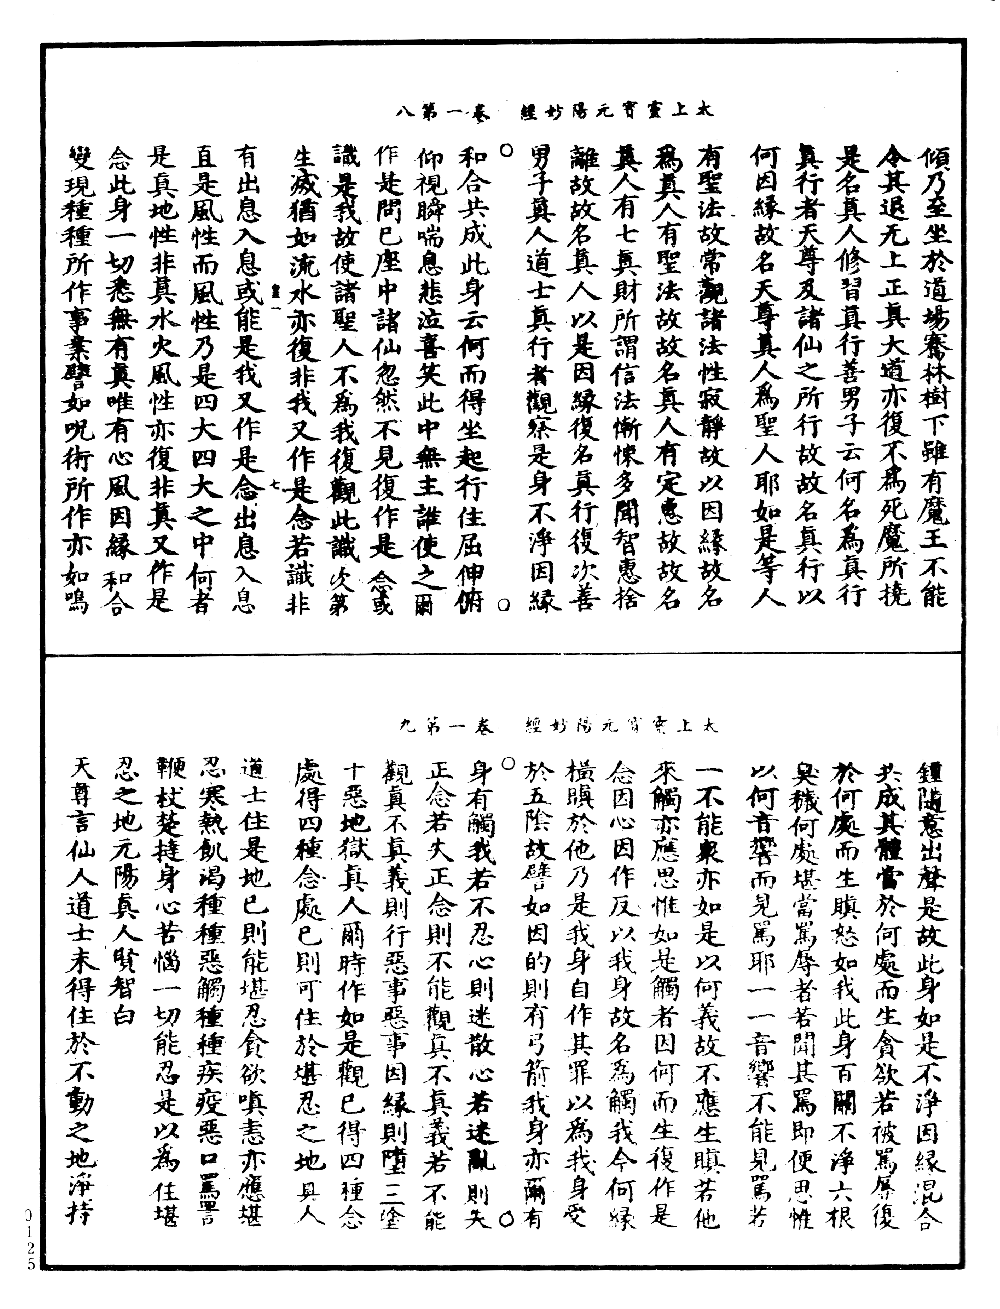 太上靈寳元陽妙經　卷一第八
傾乃至坐於道場騫林樹下雖有魔王不能
令其退无上正真大道亦復不為死魔所撓
是名真人修習真行善男子云何名為真行
真行者天尊及諸仙之所行故故名真行以
何因緣故名天尊真人為聖人耶如是等人
有聖法故常觀諸法性寂靜故以因緣故名
為真人有聖法故故名真人有定惠故故名
真人有七真財所謂信法慚悚多聞智惠捨
離故故名真人以是因緣復名真行復次善
男子真人道士真行者觀察是身不淨因緣
和合共成此身云何而得坐起行住屈伸俯
仰視瞬喘息悲泣喜笑此中無主誰使之爾
作是問已座中諸仙忽然不見復作是念或
識是我故使諸聖人不為我復觀此識次第
生滅猶如流水亦復非我又作是念若識非
有出息入息或能是我又作是念出息入息
直是風性而風性乃是四大四大之中何者
是真地性非真水火風性亦復非真又作是
念此身一切悉無有真唯有心風因緣和合
變現種種所作事業譬如呪術所作亦如鳴
太上靈寳元陽妙經　卷一第九
鍾隨意出聲是故此身如是不淨因緣混合
共成其體當於何處而生貪欲若被罵辱復
於何處而生瞋怒如我此身百關不淨六根
臭穢何處堪當罵辱者若聞其罵即便思惟
以何音響而見罵耶一一音響不能見罵若
一不能衆亦如是以何義故不應生瞋若他
來觸亦應思惟如是觸者因何而生復作是
念因心因作反以我身故名為觸我今何緣
橫瞋於他乃是我身自作其罪以為我身受
於五陰故譬如因的則有弓箭我身亦爾有
身有觸我若不忍心則迷散心若迷亂則失
正念若失正念則不能觀真不真義若不能
觀真不真義則行惡事惡事因緣則墮三塗
十惡地獄真人爾時作如是觀已得四種念
處得四種念處已則可住於堪忍之地真人
道士住是地已則能堪忍貪欲嗔恚亦應堪
忍寒熱飢渴種種惡觸種種疾疫惡口罵詈
鞭杖楚撻身心苦惱一切能忍是以為住堪
忍之地元陽真人賢智白
天尊言仙人道士未得住於不動之地淨持
0125